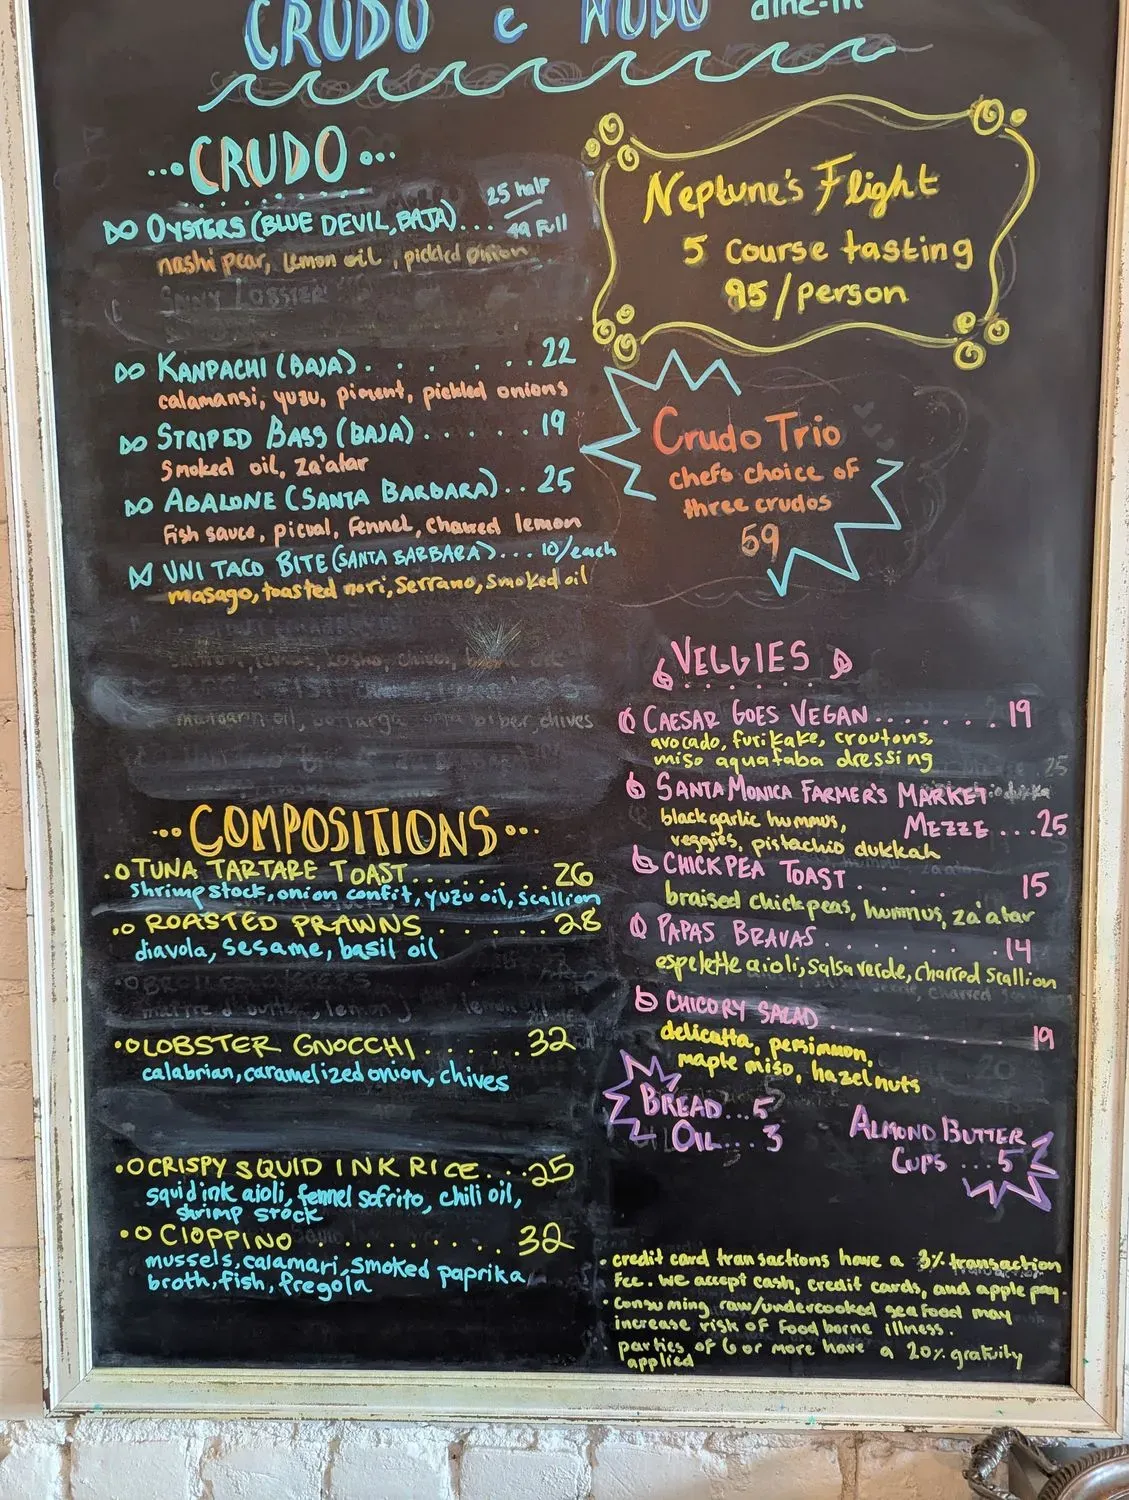 CRUDO e NUDO dine-in
...CRUDO...
OYSTERS (BLUE DEVIL, BAJA)... 25 half
49 Full
nashi pear, lemon oil, pickled onion
KANPACHI (BAJA)........22
calamansi, yuzu, piment, pickled onions
STRIPED BASS (BAJA)......19
smoked oil, za'atar
ABALONE (SANTA BARBARA)..25
fish sauce, picual, fennel, charred lemon
UNI TACO BITE (SANTA BARBARA)... 10/each
masago, toasted nori, serrano, smoked oil
...COMPOSITIONS...
TUNA TARTARE TOAST........26
shrimp stock, onion confit, yuzu oil, scallion
ROASTED PRAWNS......28
diavola, sesame, basil oil
LOBSTER GNOCCHI......32
calabrian, caramelized onion, chives
CRISPY SQUID INK RICE...25
squid ink aioli, fennel sofrito, chili oil,
shrimp stock
CIOPPINO.........32
mussels, calamari, smoked paprika
broth, fish, fregola
Neptune's Flight
5 course tasting
95/person
Crudo Trio
chefs choice of
three crudos
59
VEGGIES
CAESAR GOES VEGAN.......19
avocado, furikake, croutons,
miso aquafaba dressing
SANTA MONICA FARMER'S MARKET
MEZZE...25
black garlic hummus,
veggies, pistachio dukkah
CHICKPEA TOAST......15
braised chickpeas, hummus, za'atar
PAPAS BRAVAS.......14
espelette aioli, salsa verde, charred scallion
CHICORY SALAD..........19
delicatta, persimmon,
maple miso, hazelnuts
BREAD...5
OIL...3
ALMOND BUTTER
CUPS...5
• credit card transactions have a 3% transaction
fee. we accept cash, credit cards, and apple pay.
• consuming raw/undercooked seafood may
increase risk of food borne illness.
• parties of 6 or more have a 20% gratuity
applied